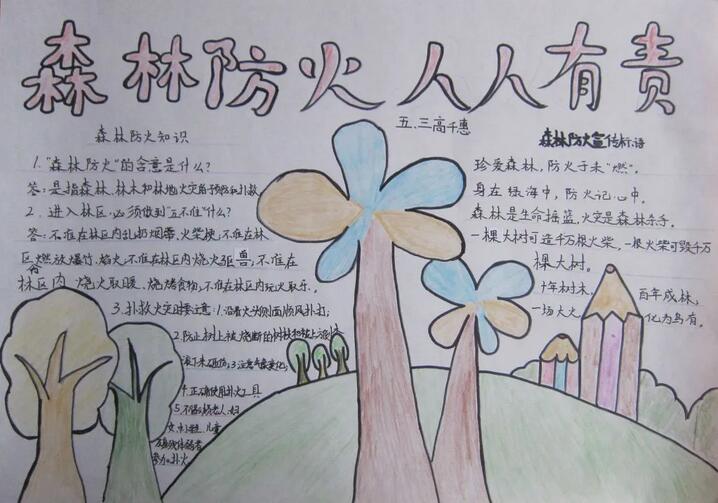 森林防火 人人有责
五.三高千惠
森林防火知识
1."森林防火"的含意是什么?
答:是指森林、林木和林地火灾的预防和扑救
2.进入林区,必须做到"五不准"什么?
答:不准在林区内乱扔烟蒂、火柴梗;不准在林
区内燃放爆竹、焰火;不准在林区内烧火驱兽;不准在
林区内烧火取暖、烧烤食物;不准在林区内玩火取乐。
3.扑救火灾时要注意:1.沿着火头侧面顺风扑打;
2.防止树上被烧断的树枝和被
3.注意
4.正确使用扑火工具
5.不
女、小姓、儿童
参加扑火
森林防火宣传标语
珍爱森林,防火于未"燃"。
身在绿海中,防火记心中。
森林是生命摇篮,火灾是森林杀手。
一棵大树可造千万根火柴,一根火柴可毁千万
棵大树。
十年树木,百年成林,
一场大火,化为乌有。